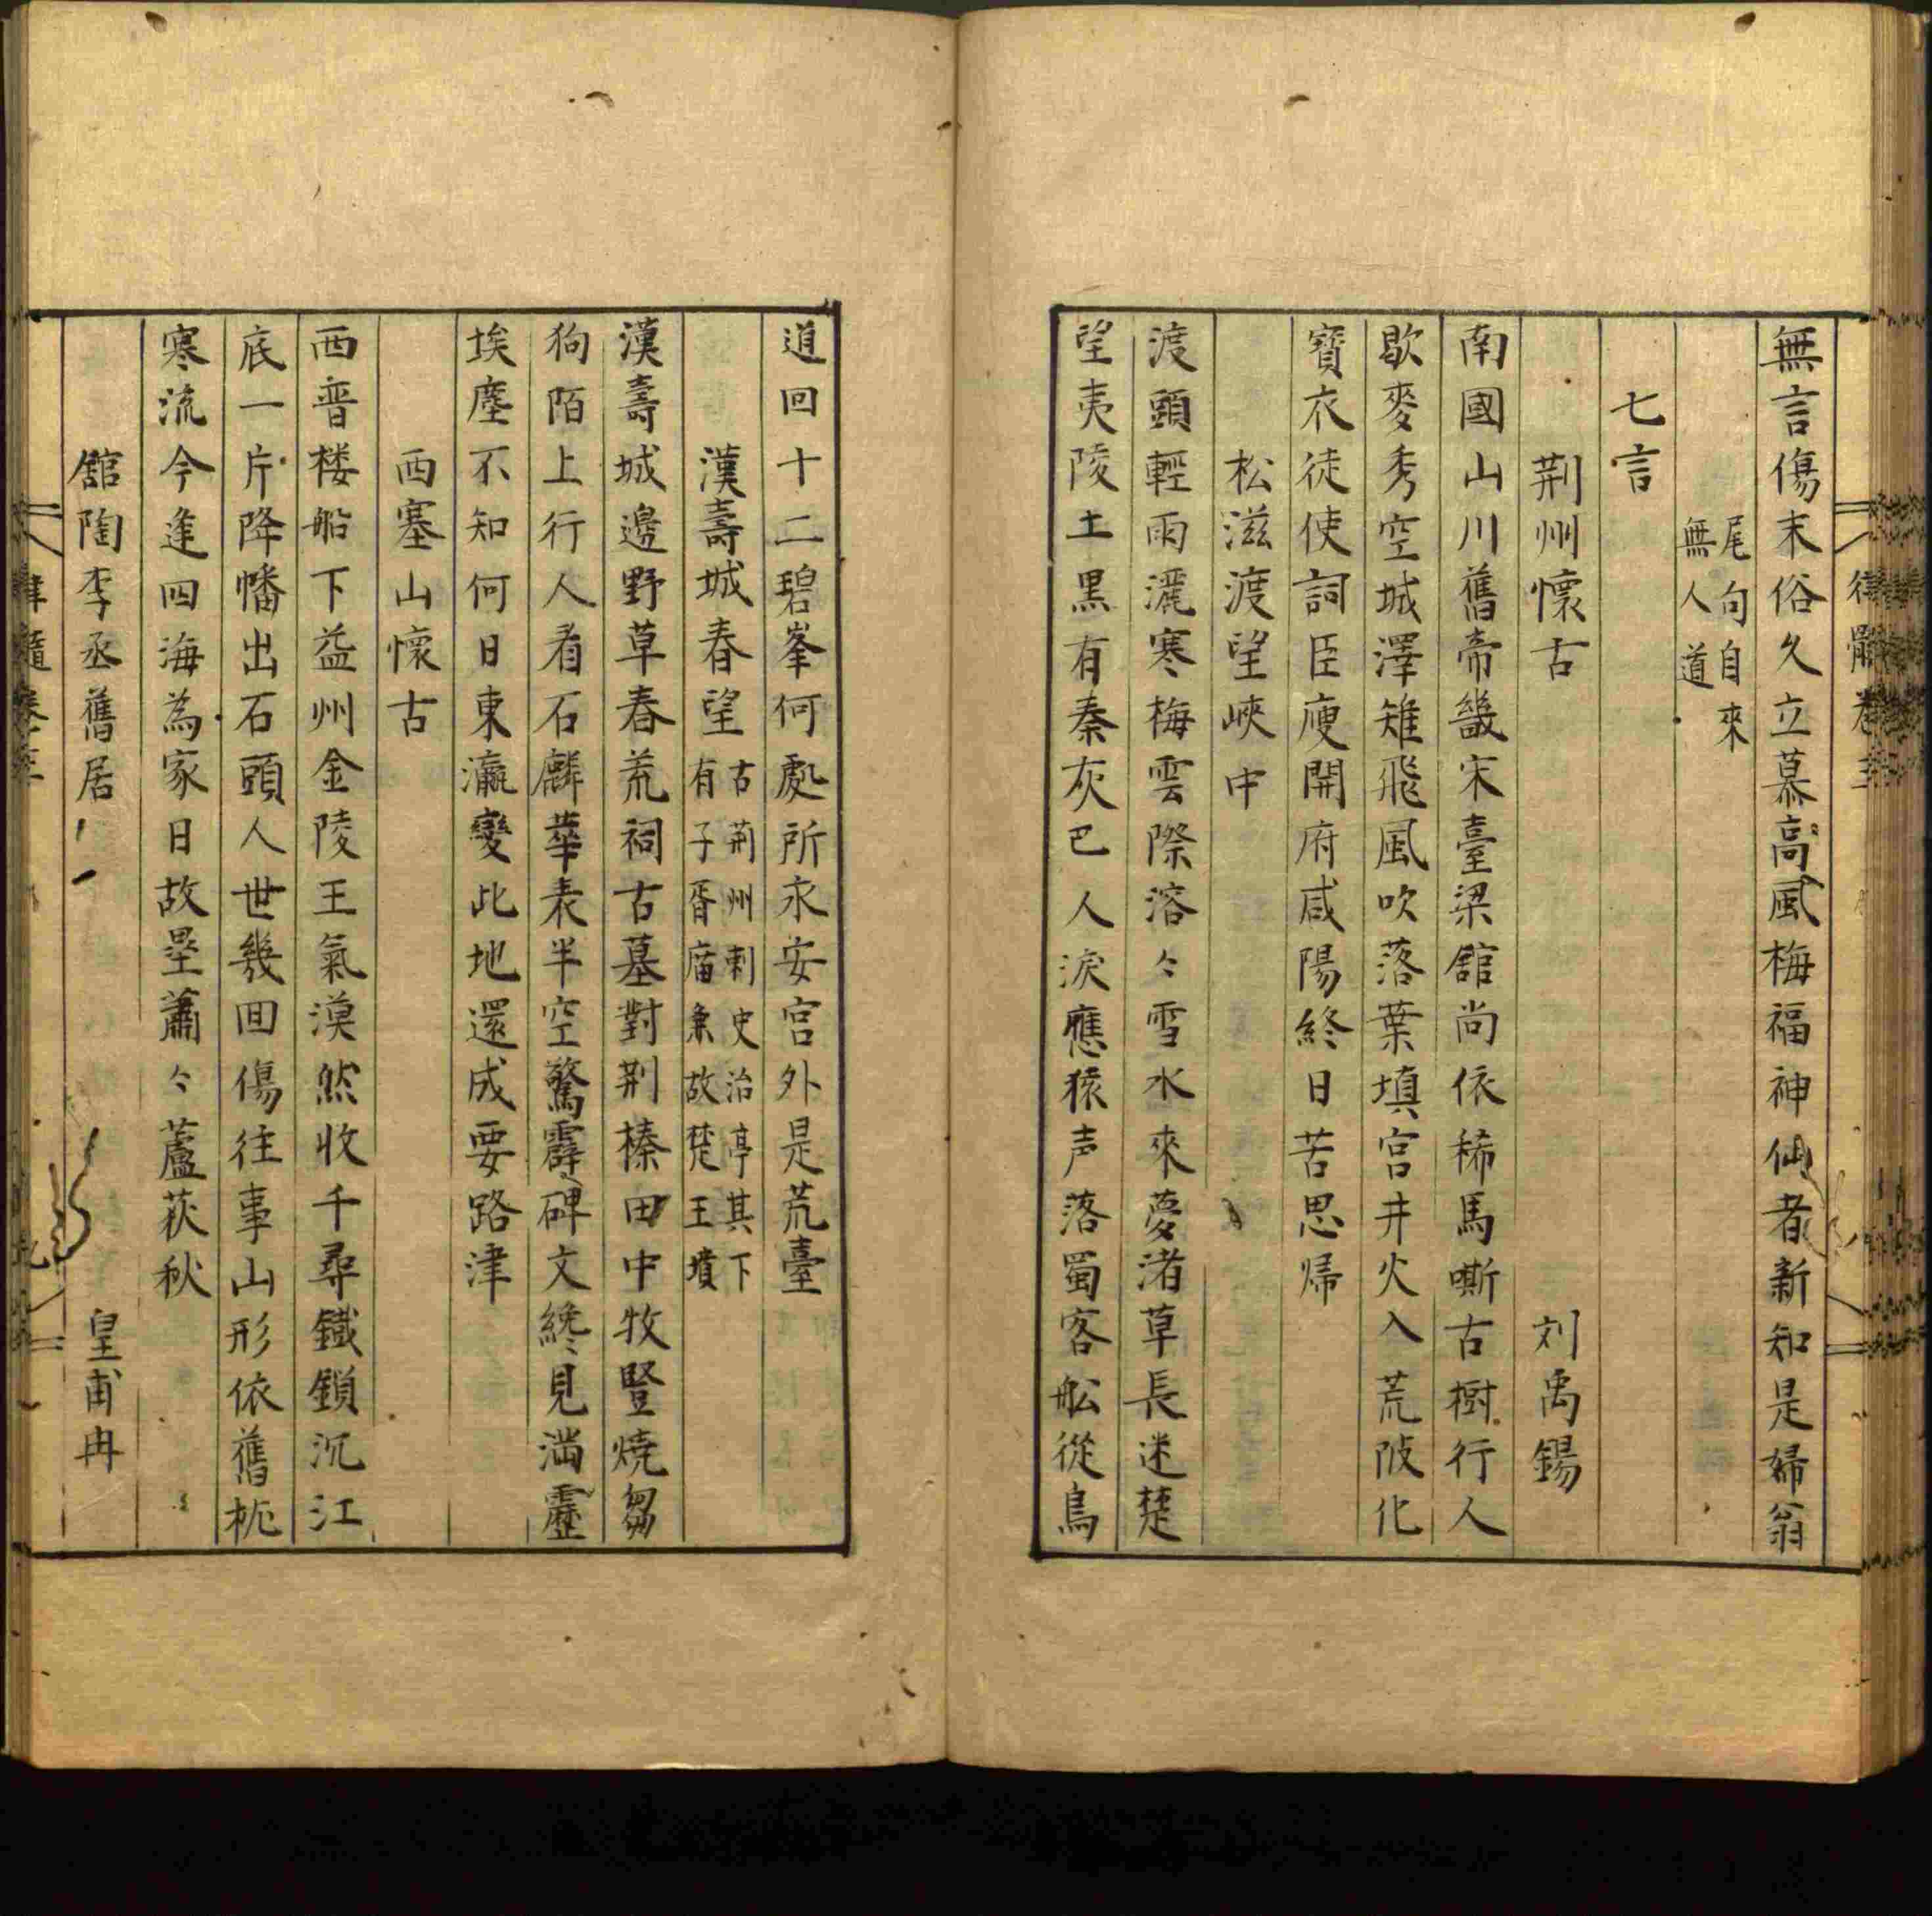 無言傷末俗久立慕高風梅福神仙者新知是婦翁
尾句自來
無人道
七言
荆州懷古 刘禹錫
南國山川舊帝畿宋臺梁舘尚依稀馬嘶古樹行人
歇麥秀空城澤雉飛風吹落葉填宮井火入荒陂化
寶衣徒使詞臣庾開府咸陽終日苦思帰
松滋渡望峽中
渡頭輕雨灑寒梅雲際溶々雪水來夢渚草長迷楚
望夷陵土黒有秦灰巴人淚應猿声落蜀客舩從鳥
道回十二碧峯何處所永安宮外是荒臺
漢壽城春望
古荆州刺史治亭其下
有子胥廟兼故楚王墳
漢壽城邊野草春荒祠古墓對荆榛田中牧豎燒芻
狗陌上行人看石麟華表半空驚霹碑文纔見滿靂
埃塵不知何日東瀛變此地還成要路津
西塞山懷古
西晋楼船下益州金陵王氣漠然收千尋鐵鎖沉江
底一片降幡出石頭人世幾回傷往事山形依舊枕
寒流今逢四海為家日故壘蕭々蘆荻秋
舘陶李丞舊居 皇甫冉